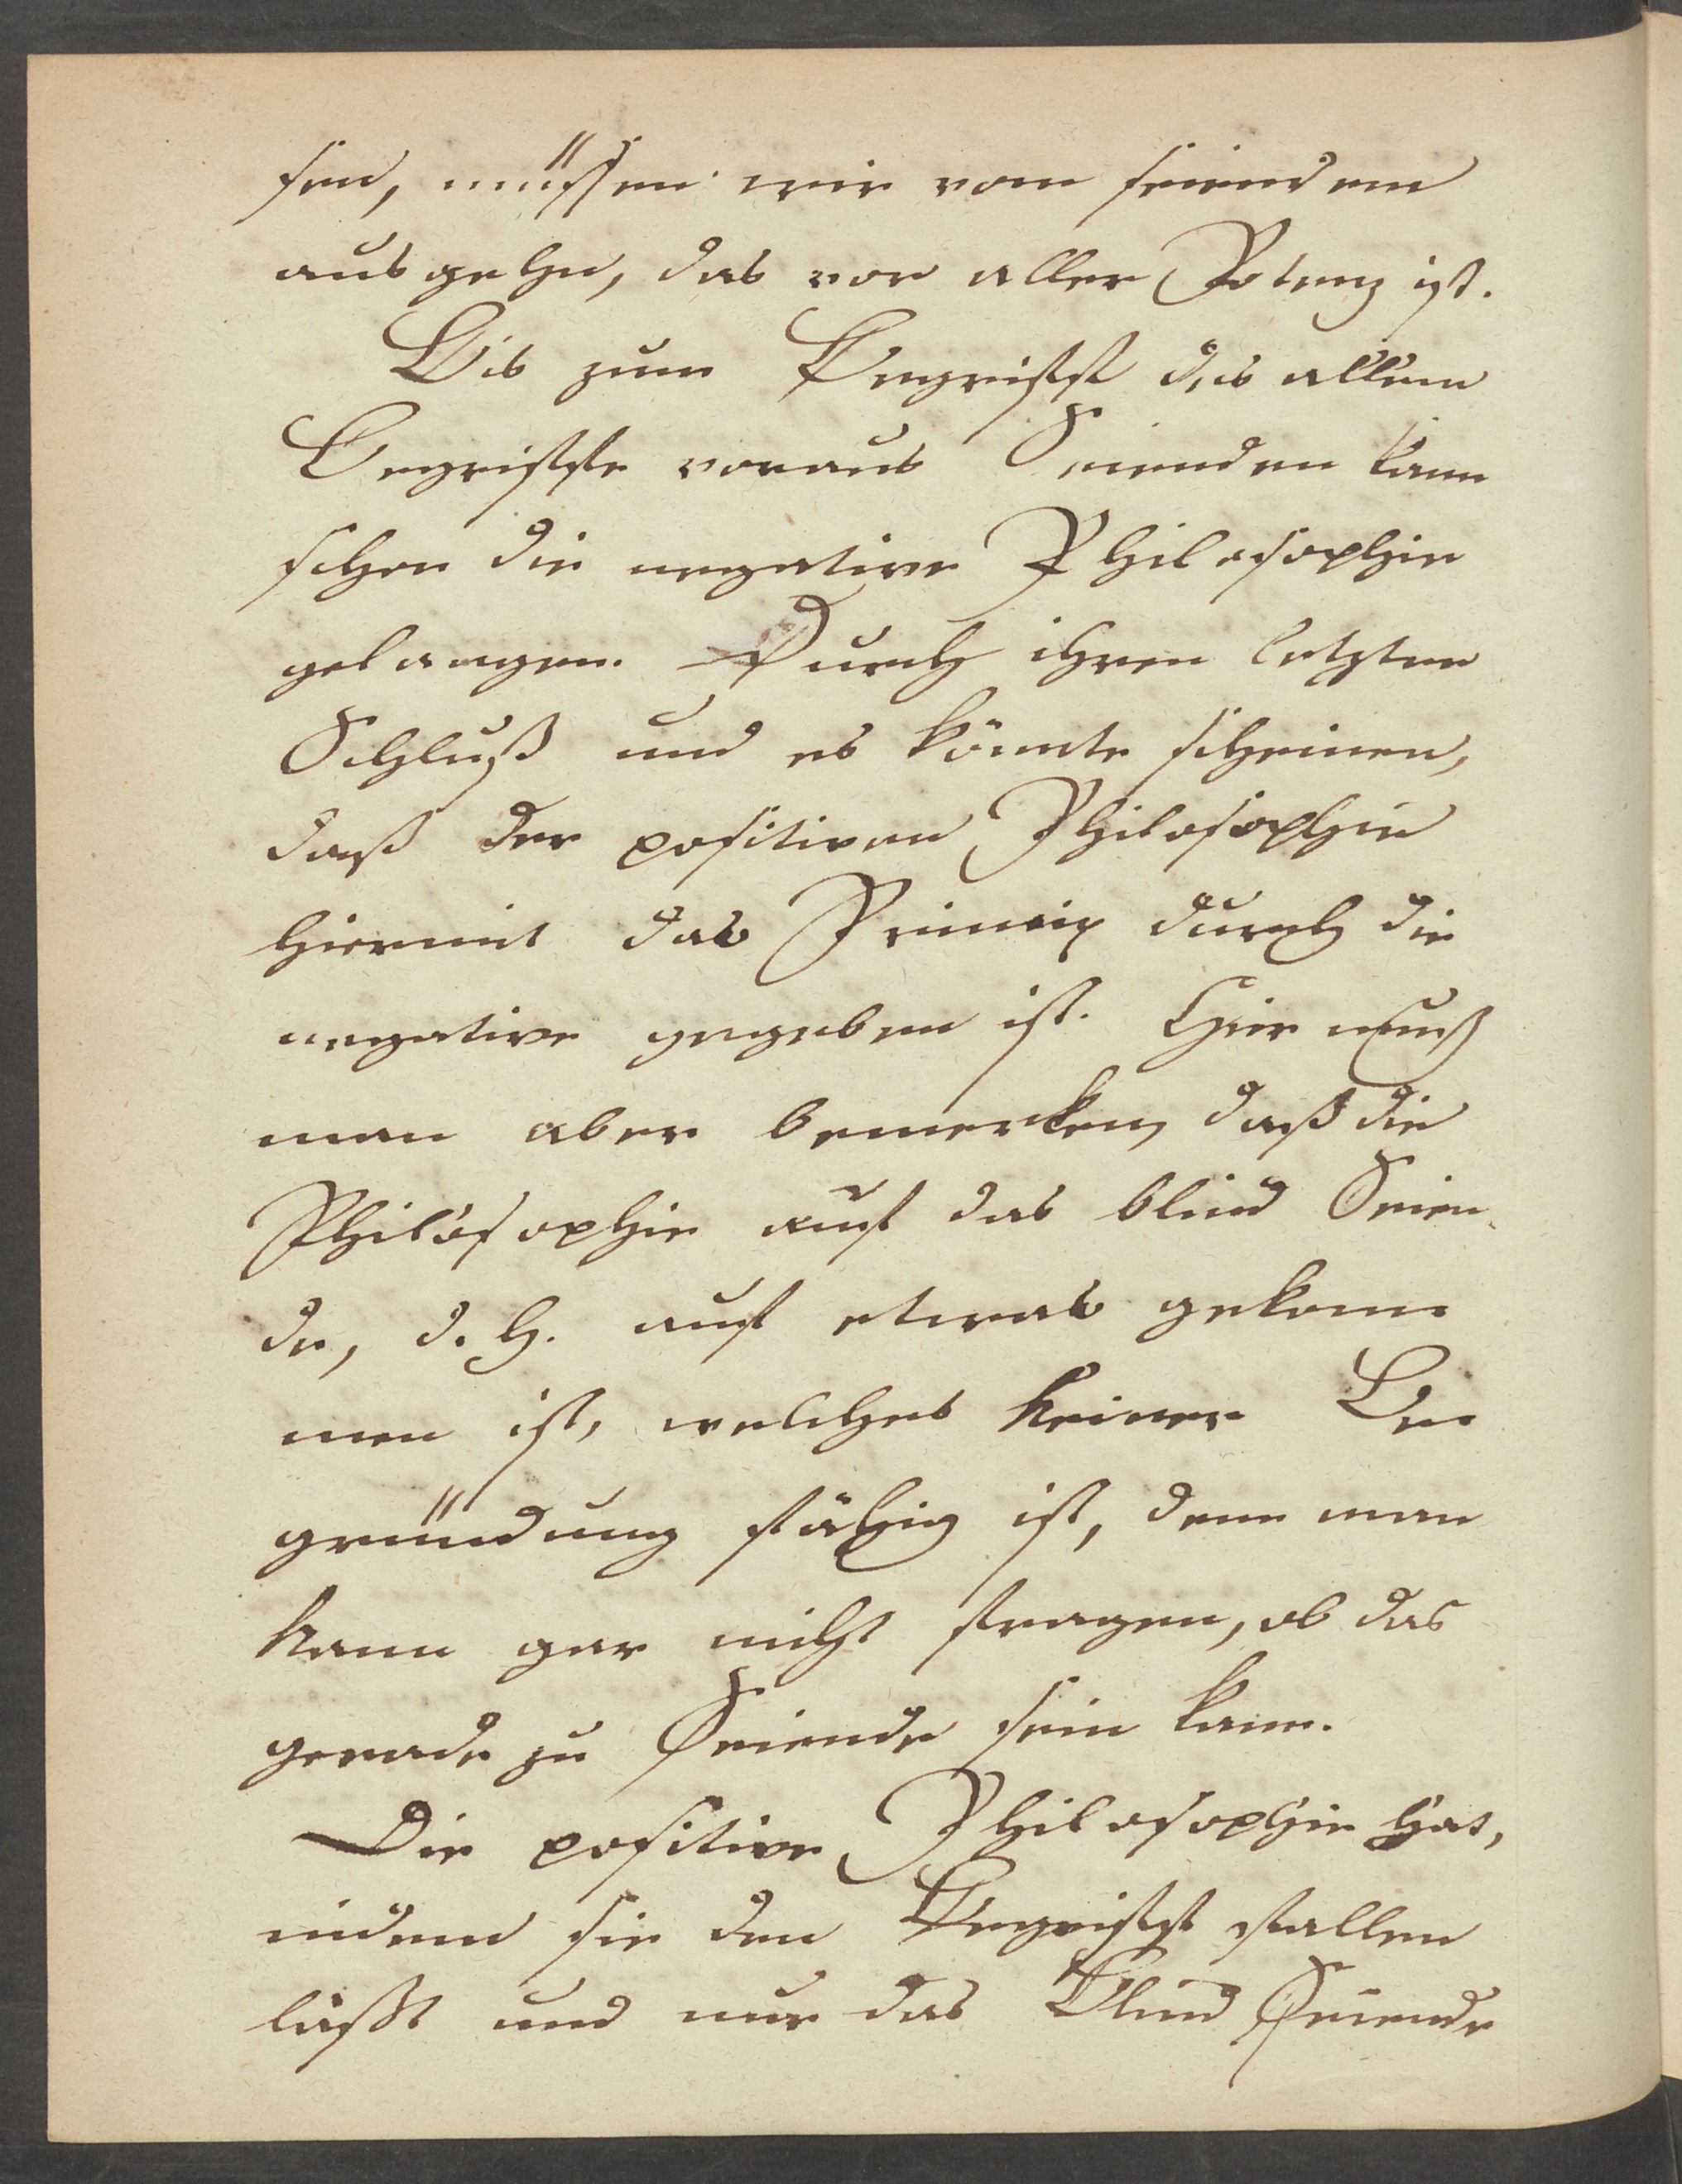 sen, müssen wir vom seiendem
ausgehn, das vor aller Potenz ist.
Bis zum Begriff des allem
Begriffe voraus Seienden kann
schon die negative Philosophie
gelangen. Durch ihren letzten
Schluß und es könnte scheinen,
daß der positiven Philosophie
hiermit das Princip durch die
negative gegeben ist. Hier muß
man aber bemerken, daß die
Philosophie auf das blind Seien
de, d. h. auf etwas gekom
men ist, welches keiner Be
gründung fähig ist, denn man
kann gar nicht fragen, ob das
gerade zu Seiende sein kann.
Die positive Philosophie hat,
indem sie den Begriff fallen
läßt und nur das Blind Seiende